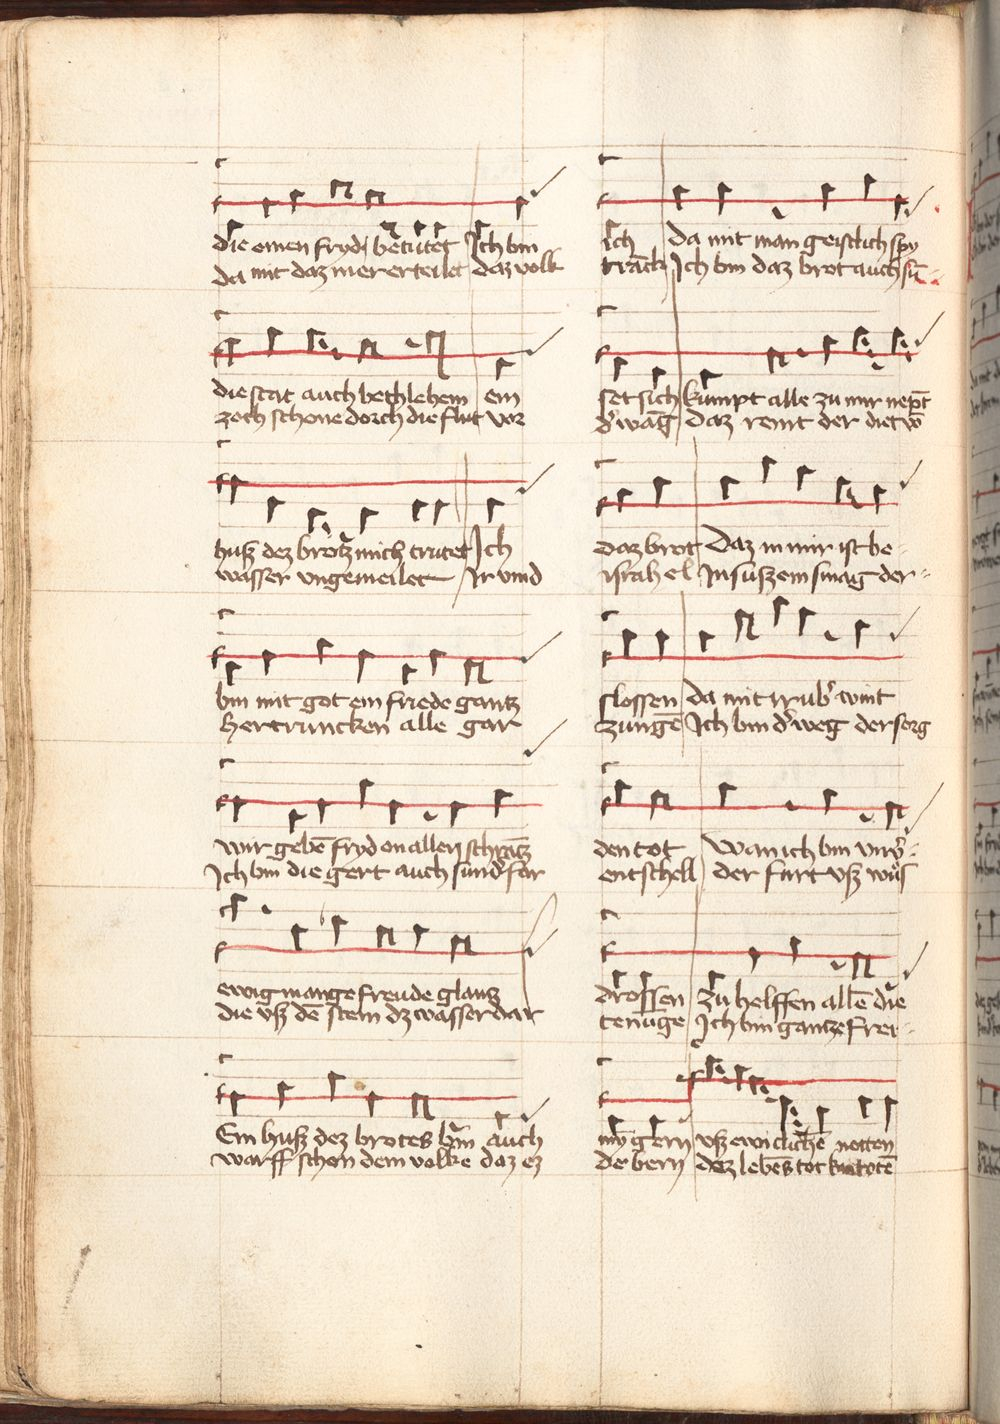 die einen fryd betutet Ich bin
da mit daz mer erteilet daz volk
die stat auch bethlehem ein
zoch schone dorch die flut vor
huß dez brotz mich trutet Ich
wasser vngemeilet Ir vind
bin mit got ein friede gantz
hertruncken alle gar
wir gebē fryd on allen schrātz
Ich bin die gert auch sunder far
ewig mange freude glantz
die vß dē stein dz wasser dar
Ein huß dez brotes bin auch
warff schon dem volke daz ez
ich da mit man geistlich spy
tranck Ich bin daz brot auch
set sich kumpt alle zu mir
daz reint der diet
daz brot Daz in mir ist be-
israhel In susz ein smag der-
flossen da mit wint
zunge Ich bin dˢ weg der sorg
den tot Wan ich bin
entschell der furt vß
drossen zu helffen allē die
Ich bin gantze frei-
mȳ gern vß ewiclichē notten
de bern dez lebēs tot